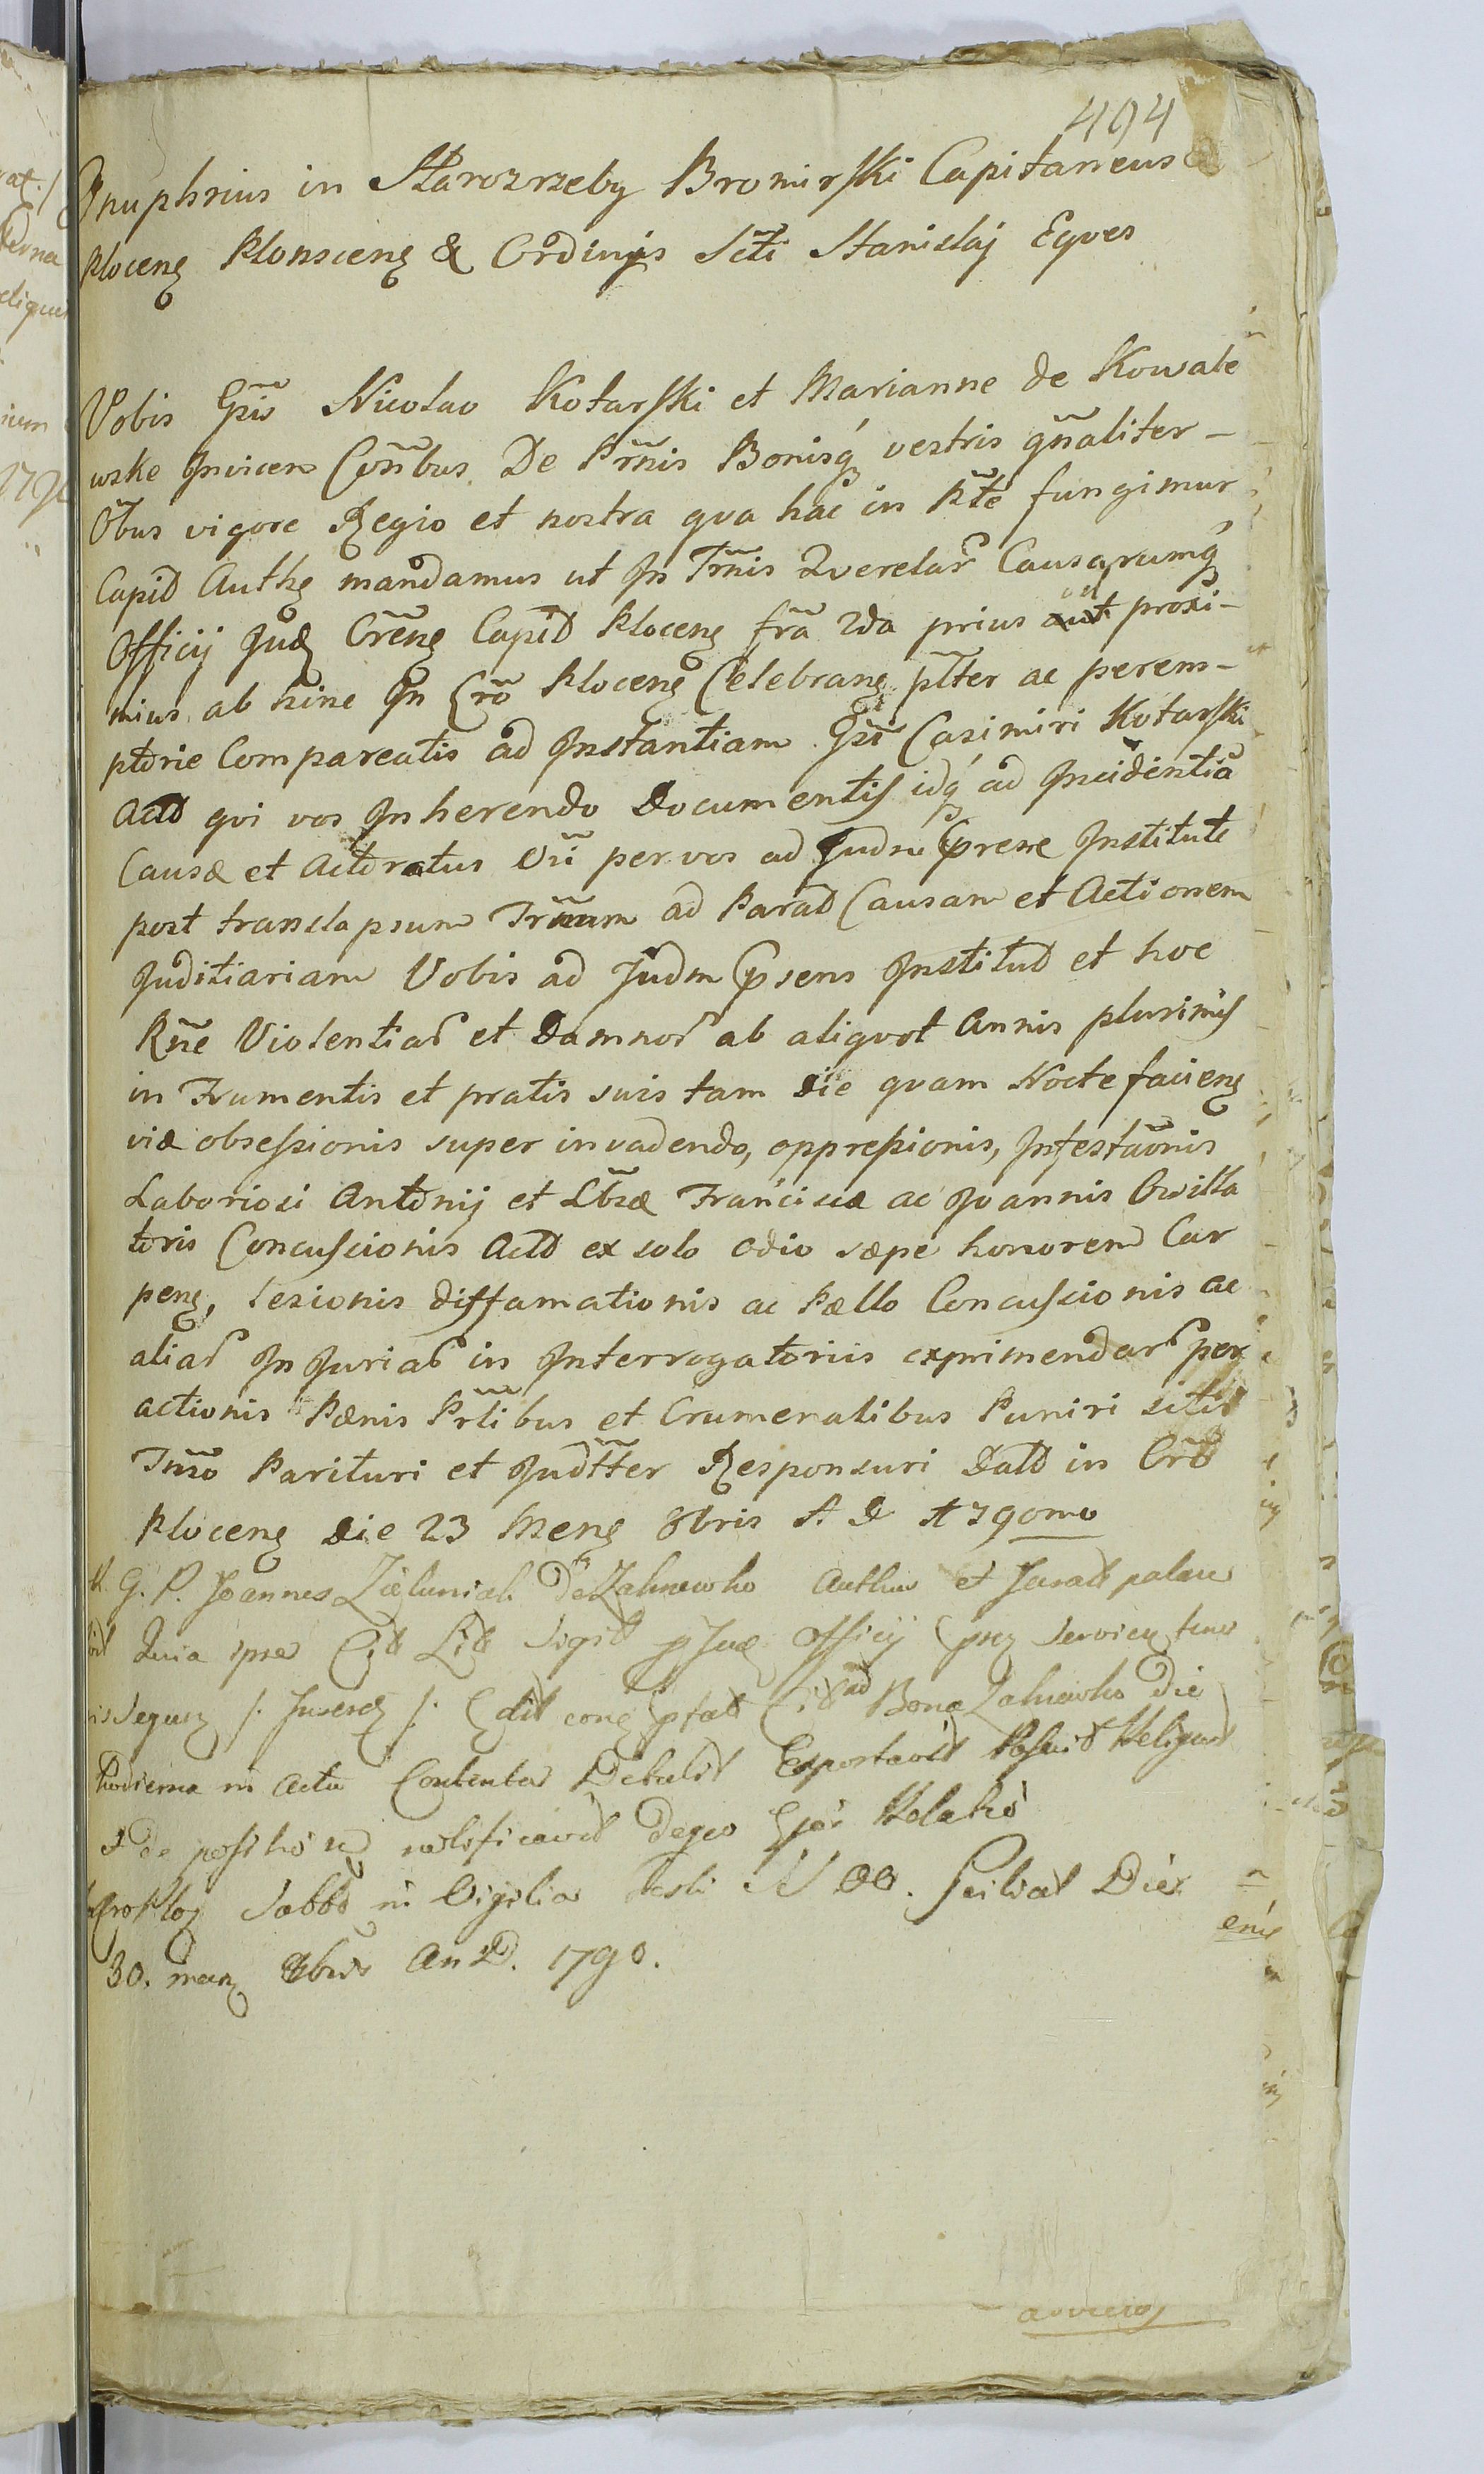 494
Onuphrius in Starozrzeby Bromirski Capitaneus
Ploceng Plonsceng & Ordinis Scti Stanislaj Eqves
Vobis Gsis Nicolao Kotarski et Marianne de Kowale
wske Invicem Conbus De Prnis Bonisq vestris gnaliter –
Obus vigore Regio et nostra qva hac in Pte fungimur
Capid Authe mandamus ut In Trnis Qverelar Causarumq
Officij Jud Creng Capid Ploceng fra 2da prius aut ad proxi–
mius ab hinc In Cro Ploceng Celebrang plter ac perem–
ptorie Compareatis ad Instantiam Gsi Casimiri Kotarski
Actd qvi vos Inherendo Documentis idq ad Incidentia
Causæ et Actoratus Vri per vos ad Judm Prese Institute
post translapsum Trnum ad Parad Causam et Actionem
Juditiariam Vobis ad Judm Psens Institud et hoc
Rne Violentiar et Damnor ab aliqvot Annis plurimis
in Frumentis et pratis suis tam Die qvam Nocte facieng
viæ obsessionis super invadendo, oppressionis, Infestaonis
Laboriosi Antonij et Lbsæ Franciscæ ac Joannis Owilla
toris Concuscionis Actd ex solo odio sæpe honorem Car
peng, lesionis diffamationis ac Pællo Concuscionis ac
aliar Injuriar in Interrogatoriis exprimendar per
actionis Pænis Prlibus et Crumenalibus Puniri sitis
Trnso Parituri et Judtter Responsuri Datd in Crd
Ploceng Die 23 Meng 8bris A D 1790mo
G. P. Joannes Zieluniak De Zalnewko Authus et Jurad palam
Quia ipse Cit Lit Sigit p Jud Officij Servien
Seque /: Juserz /: Edit cong pfat Cit ad Bona Zalnewko Die
hodierna in Actu Contentar Detulit Exportavit Posuit Reliqut
de posthó notificavit
Sabbo in Vigilia festi N OO. Scilicet Die
30. meng 8bris An D. 1790.